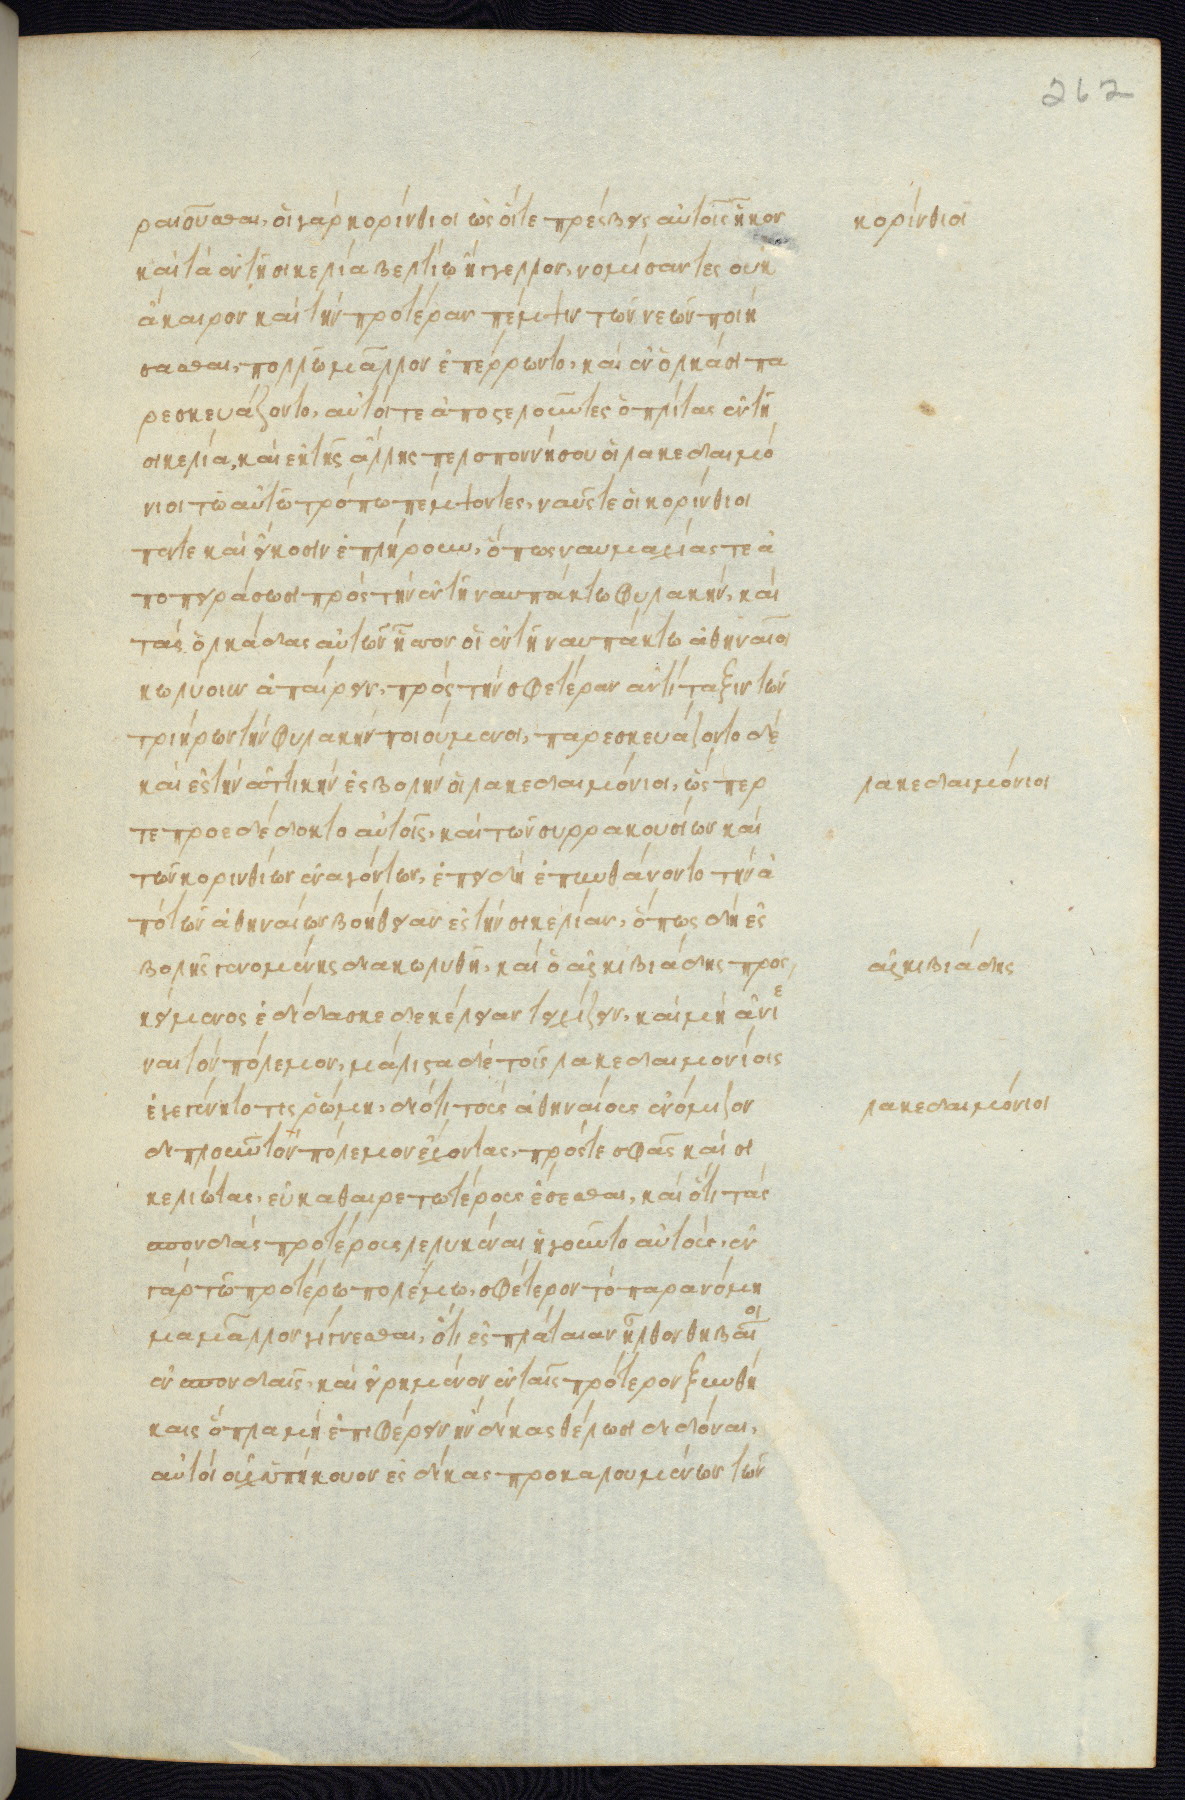 262
ραιοῦσθαι, ὁι γὰρ κορίνθιοι ὡς ὅιτε πρέσβεις αὐτοῖς ἧκον
καὶ τὰ ἐν τῆ σικελία βελτίω ἤγγελλον, νομίσαντες οὐκ
ἄκαιρον καὶ τὴν προτέραν πέμψιν τῶν νεῶν ποιή
σασθαι, πολλῶ μᾶλλον ἐπέρρωντο, καὶ ἐν ὁλκάσι πα
ρεσκευάζοντο, αὐτοί τε ἀποστελοῦντες ὁπλίτας ἐν τῆ
σικελία, καὶ ἐκ τῆς ἄλλης πελοποννήσου ὁι λακεδαιμό
νιοι τῶ αὐτῶ τρόπω πέμψοντες, ναῦς τε ὁι κορίνθιοι
πέντε καὶ εἴκοσιν ἐπλήρουν, ὅπως ναυμαχίας τε ἀ
ποπειράσωσι πρὸς τὴν ἐν τῆ ναυπάκτω φυλακήν, καὶ
τὰς ὁλκάδας αὐτῶν ἧσσον οἱ ἐν τῆ ναυπάκτω ἀθηναῖοι
κωλύοιεν ἀπαίρειν, πρὸς τὴν σφετέραν ἀντίταξιν τῶν
τριήρων τὴν φυλακὴν ποιούμενοι, παρεσκευάζοντο δὲ
καὶ ἐς τὴν ἀττικὴν ἐσβολὴν ὁι λακεδαιμόνιοι, ὥσπερ
τε προεδέδοκτο αὐτοῖς, καὶ τῶν συρρακουσίων καὶ
τῶν κορινθίων ἐναγόντων, ἐπειδὴ ἐπυνθάνοντο τὴν ἀ
πὸ τῶν ἀθηναίων βοήθειαν ἐς τὴν σικελίαν, ὅπως δὴ ἐσ
βολῆς γενομένης διακωλυθῆ, καὶ ὁ ἀλκιβιάδης προσ
κείμενος ἐδίδασκε δεκέλειαν τειχίζειν, καὶ μὴ ἀνιέ
ναι τὸν πόλεμον, μάλιστα δὲ τοῖς λακεδαιμονίοις
ἐγεγένητό τις ῥώμη, διότι τοὺς ἀθηναίους ἐνόμιζον
διπλοῦν τὸν πόλεμον ἔχοντας, πρός τε σφᾶς καὶ σι
κελιώτας, εὐκαθαιρετωτέρους ἔσεσθαι, καὶ ὅτι τὰς
σπονδὰς προτέρους λελυκέναι ἡγοῦντο αὐτούς, ἐν
γὰρ τῶ προτέρω πολέμω, σφέτερον τὸ παρανόμη
μα μᾶλλον γίγνεσθαι, ὅτι ἐς πλάταιαν ἦλθον θηβαῖοι
ἐν σπονδαῖς, καὶ εἰρημένον ἐν ταῖς πρότερον ξυνθή
καις ὅπλα μὴ ἐπιφέρειν ἢν δίκας θέλωσι διδόναι,
αὐτοὶ οὐχ ὑπήκουον ἐς δίκας προκαλουμένων τῶν
κορίνθιοι
λακεδαιμόνιοι
ἀλκιβιάδης
λακεδαιμόνιοι